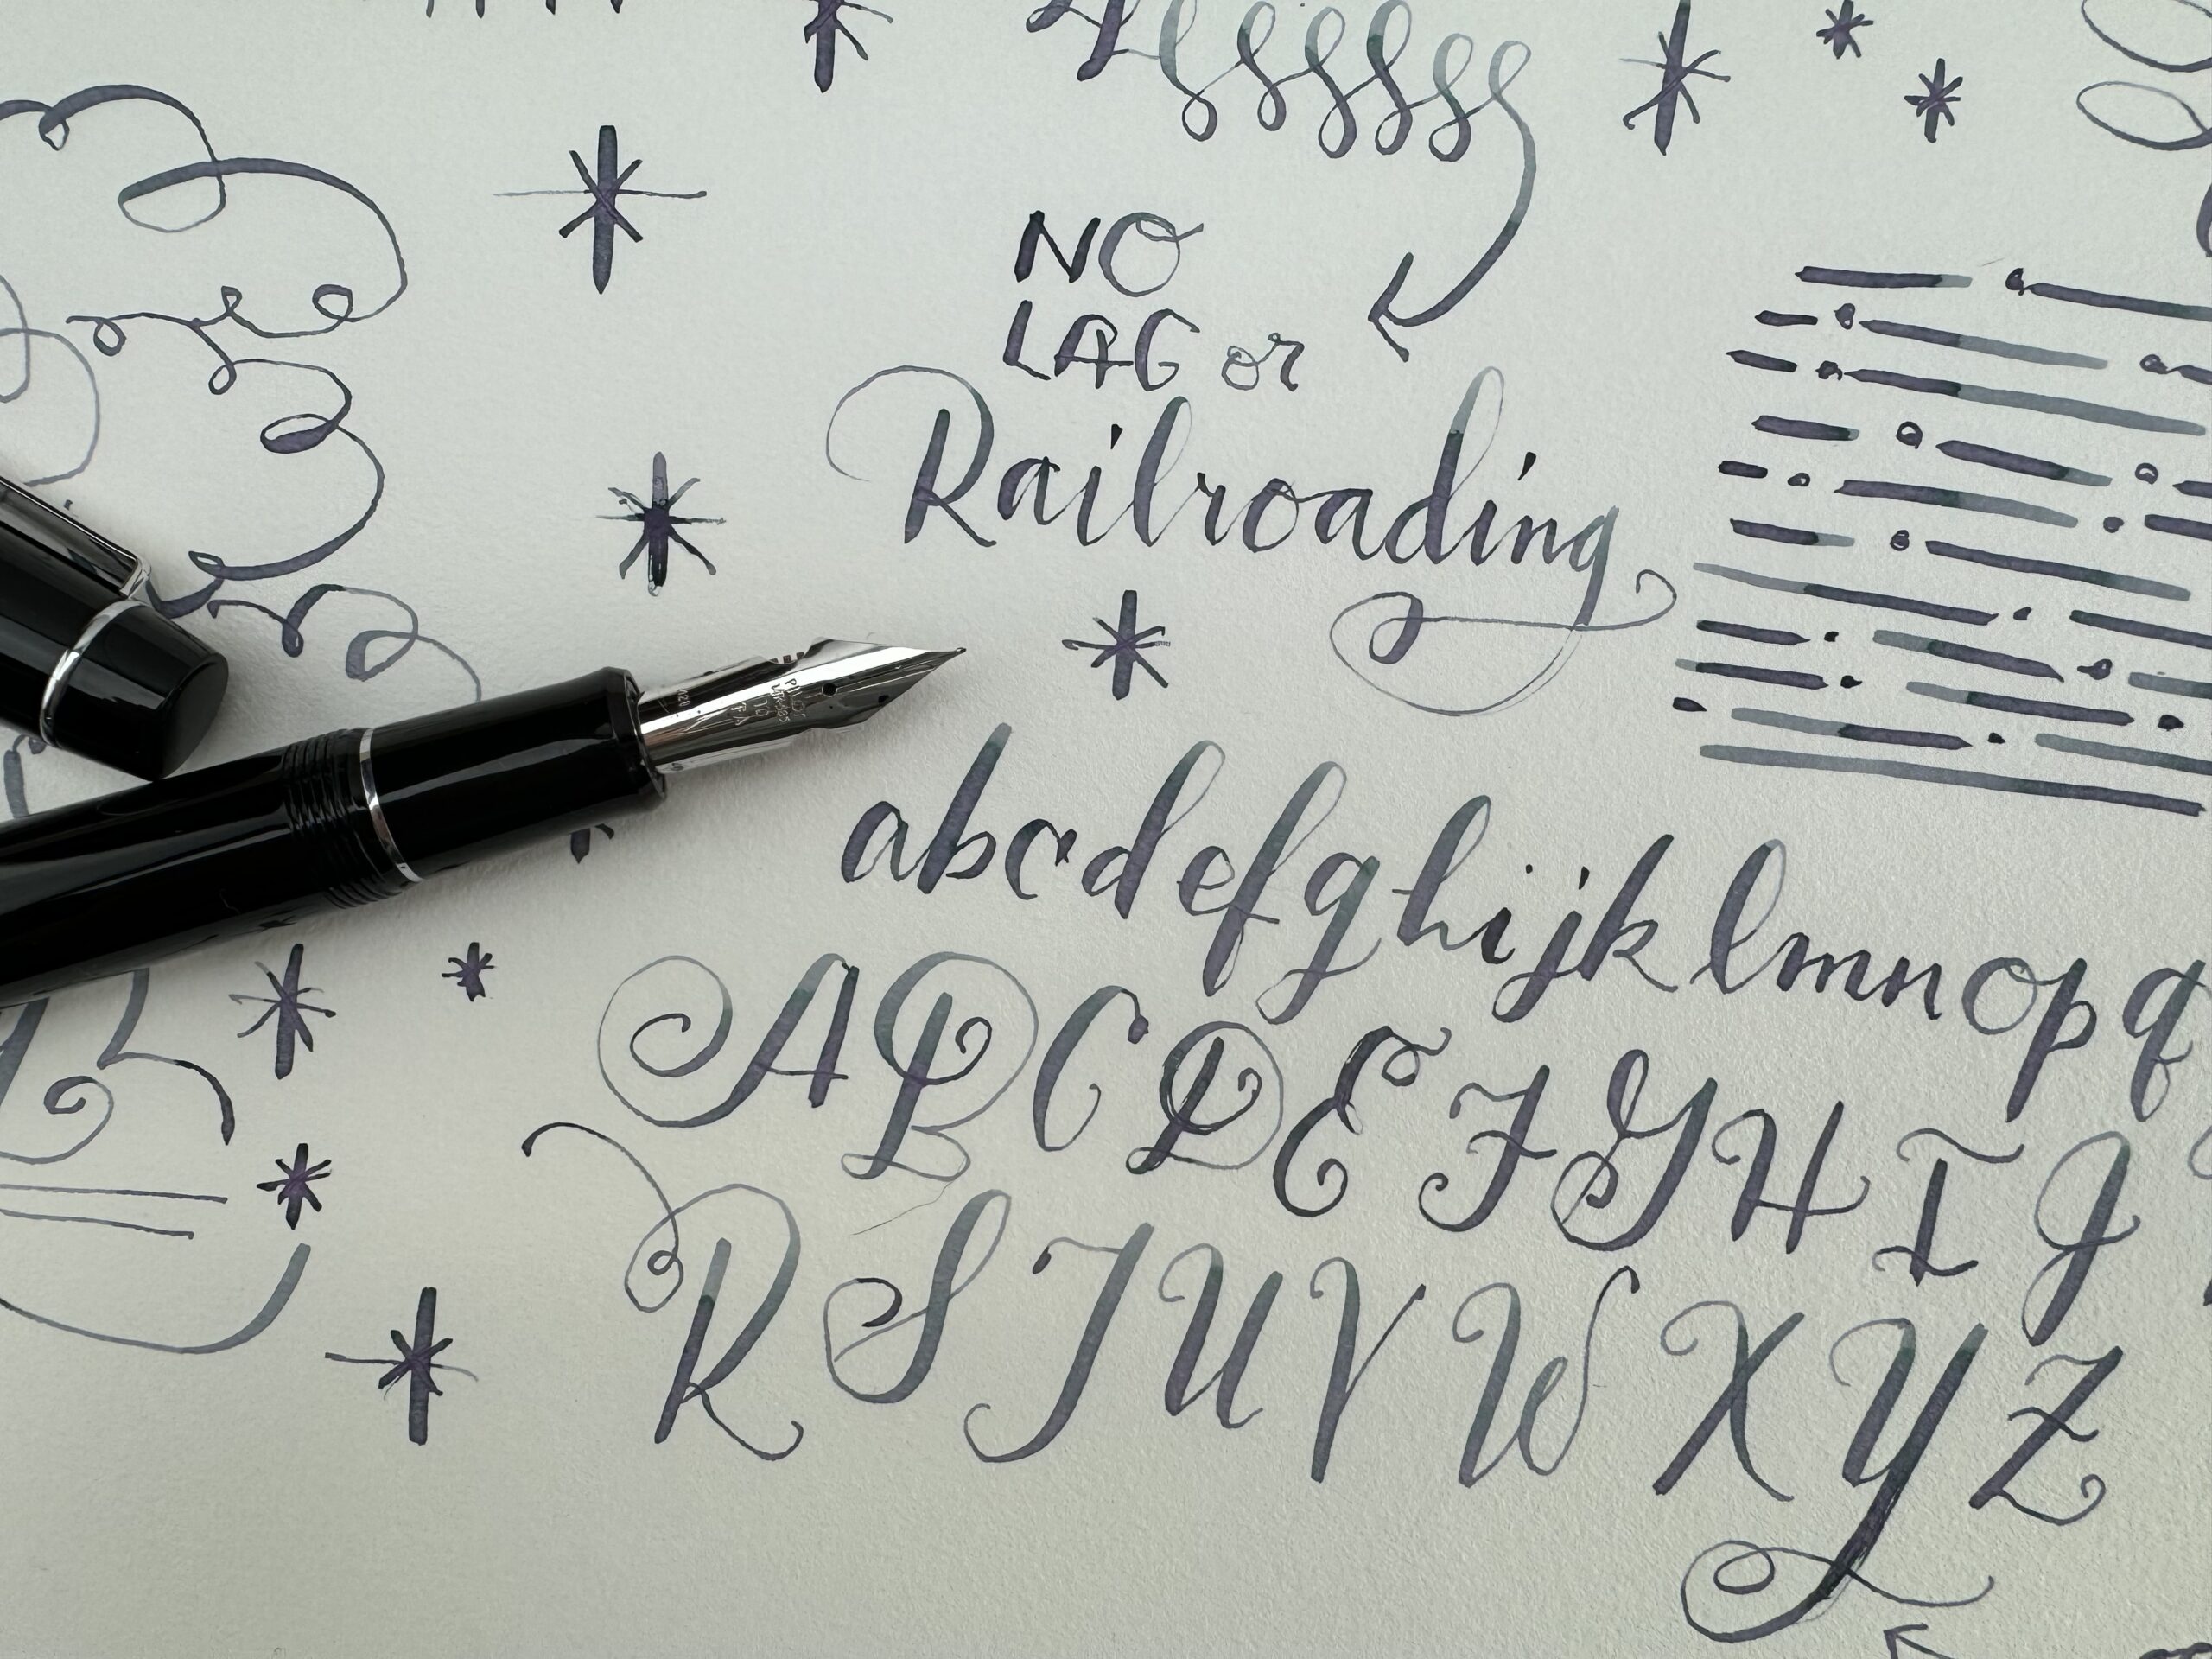 NO
LAG or
Railroading
abcdefghijklmnopq
ABCDEFGHIJ
RSTUVWXYZ
PILOT